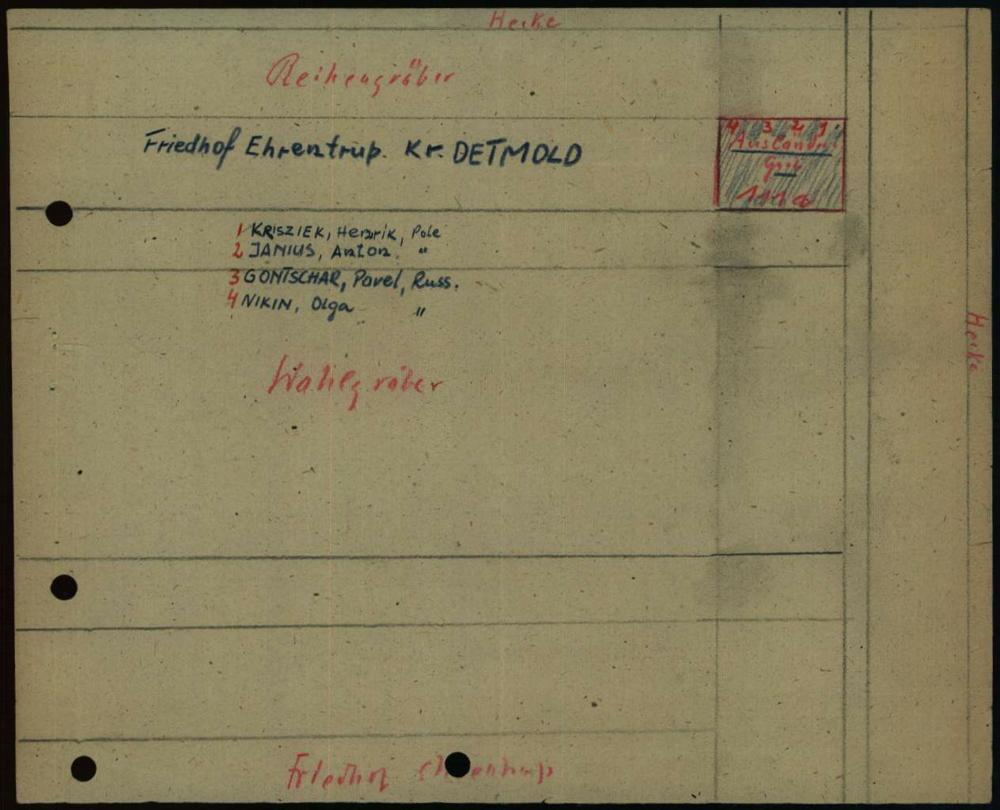 Hecke
Reihengräber
Friedhof Ehrentrup. Kr. DETMOLD
4 3 2 1.
Ausländer
1 KRISZIEK, Henrik, Pole
2 JANIUS, Anton. "
3 GONTSCHAR, Pavel, Russ.
4 NIKIN, Olga "
Wahlgräber
Hecke
Friedhof Ehrentrup